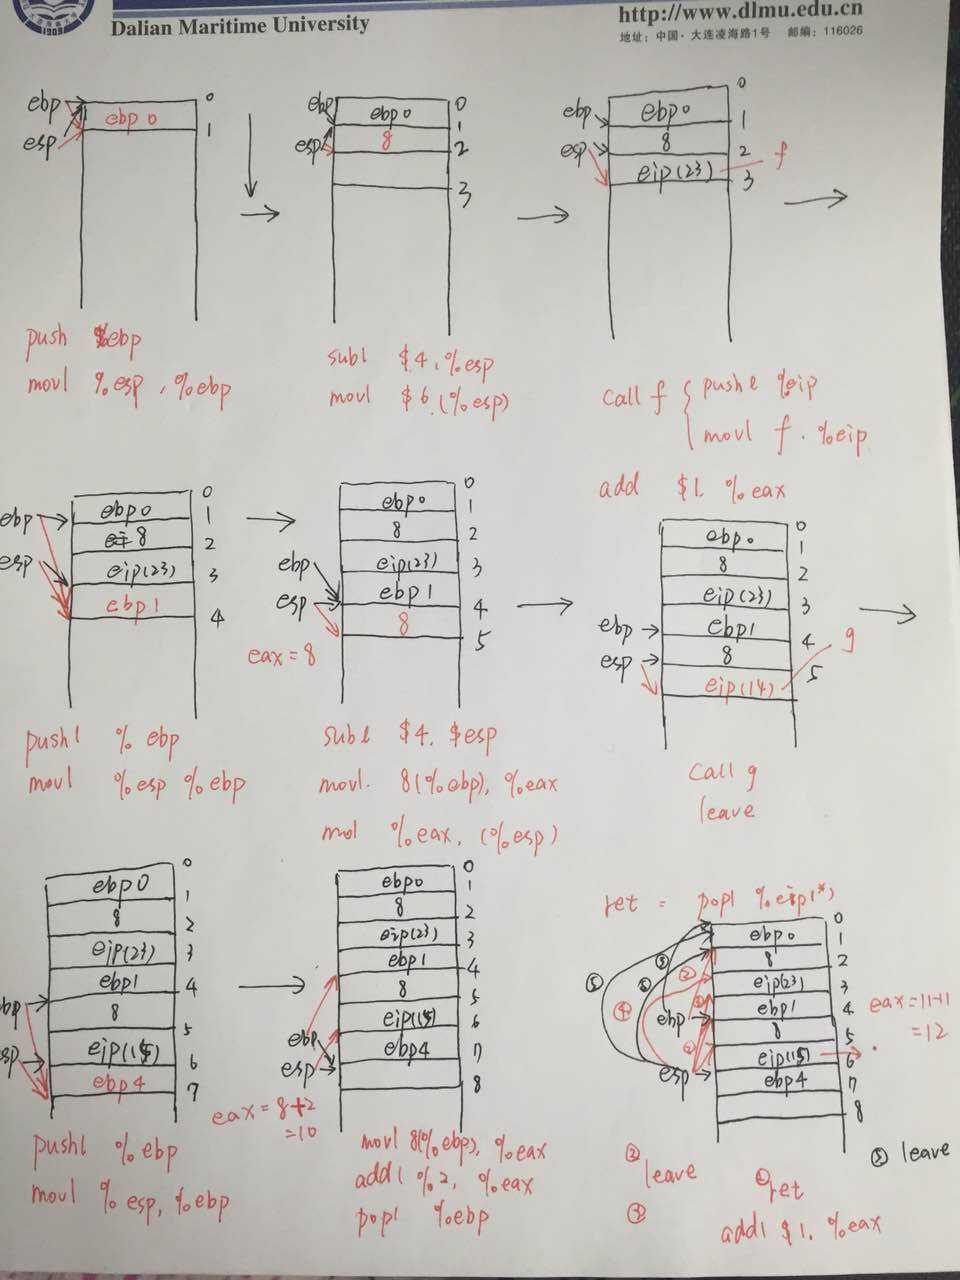 1909
Dalian Maritime University
http://www.dlmu.edu.cn
地址: 中国·大连凌海路1号 邮编: 116026
ebp
esp
ebp 0
0
1
push %ebp
movl %esp, %ebp
ebp
esp
ebp 0
8
0
1
2
3
subl $4, %esp
movl $6, (%esp)
ebp
esp
ebp0
8
eip(23)
f
0
1
2
3
call f { pushl %eip
movl f. %eip
add $1. %eax
ebp
esp
ebp0
8
eip(23)
ebp1
0
1
2
3
4
pushl % ebp
movl %esp %ebp
ebp
esp
eax = 8
ebp0
8
eip(23)
ebp1
8
0
1
2
3
4
5
subl $4. $esp
movl. 8(%ebp), %eax
mol %eax, (%esp)
ebp
esp
ebp0
8
eip(23)
ebp1
8
eip(14)
g
0
1
2
3
4
5
call g
leave
ebp
esp
ebp0
8
eip(23)
ebp1
8
eip(15)
ebp4
0
1
2
3
4
5
6
7
pushl %ebp
movl %esp, %ebp
ebp
esp
ebp0
8
eip(23)
ebp1
8
eip(15)
ebp4
0
1
2
3
4
5
6
7
8
eax = 8+2
=10
movl 8(%ebp), %eax
addl %2, %eax
popl %ebp
ret = popl %eip(*)
ebp
esp
ebp0
8
eip(23)
ebp1
8
eip(15)
ebp4
0
1
2
3
4
5
6
7
8
eax = 11+1
=12
⑤ leave
② leave
① ret
addl $1. %eax